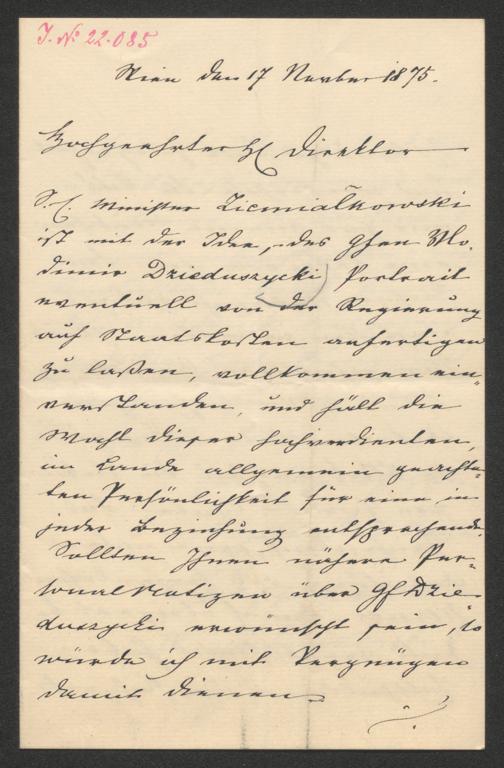 J. No 22.085
Wien den 17 November 1875.
Hochgeehrter H Direktor
S. E. Minister Ziemiałkowski
ist mit der Idee, des Gfen Wlo-
dimir Dzieduszycki Portrait
eventuell von der Regierung
auf Staatskosten anfertigen
zu laßen, vollkommen ein-
verstanden, und hält die
Wahl dieser hochverdienten,
im Lande allgemein geachte-
ten Persönlichkeit für eine in
jeder Beziehung entsprechende.
Sollten Ihnen nähere Per-
sonal Notizen über Gf Dzie-
duszycki erwünscht sein, so
würde ich mit Vergnügen
damit dienen